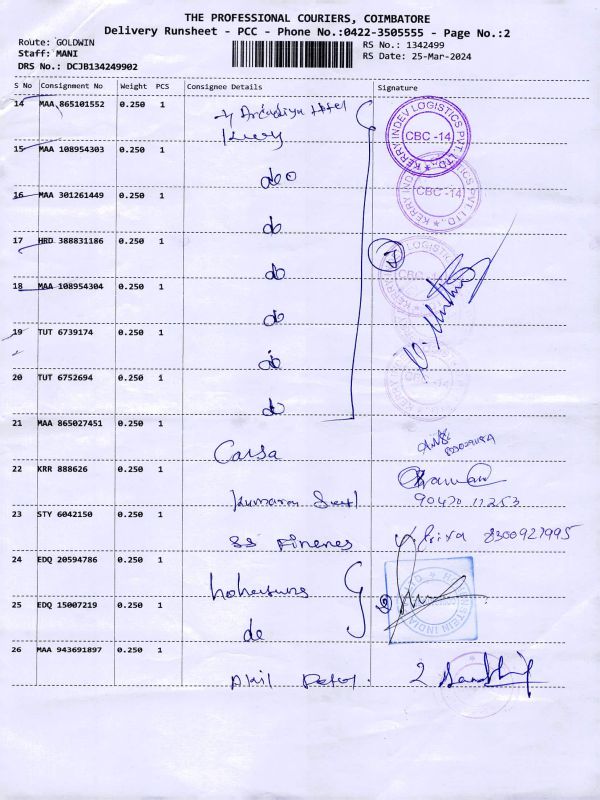 THE PROFESSIONAL COURIERS, COIMBATORE
Delivery Runsheet - PCC - Phone No.:0422-3505555 - Page No.:2
Route: GOLDWIN
RS No.: 1342499
Staff: MANI
RS Date: 25-Mar-2024
DRS No.: DCJB134249902
S No Consignment No Weight PCS Consignee Details Signature
14 MAA 865101552 0.250 1
Kerry
KERRY INDEV LOGISTICS PVT. LTD.,
CBC -14
15 MAA 108954303 0.250 1 do
KERRY INDEV LOGISTICS PVT. LTD.,
CBC -14
16 MAA 301261449 0.250 1 do
17 HRD 388831186 0.250 1 do 7
LOGISTICS
CBC -14
18 MAA 108954304 0.250 1 do
19 TUT 6739174 0.250 1 do
20 TUT 6752694 0.250 1 do
21 MAA 865027451 0.250 1
Carsa
22 KRR 888626 0.250 1
Kumaran
90470 17253
23 STY 6042150 0.250 1
SS Finenes
Priya 8300927995
24 EDQ 20594786 0.250 1
25 EDQ 15007219 0.250 1
do
26 MAA 943691897 0.250 1
Akil